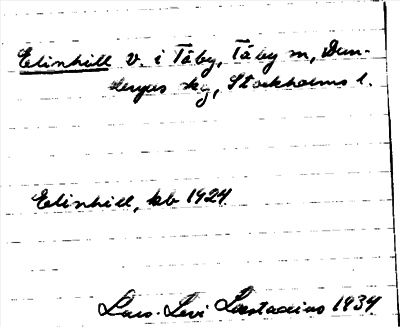 Elinhill V. i Täby, Täby sn, Dan-
deryds skg, Stockholms l.
Elinhill, kb 1924
Lars-Levi Læstadius 1934